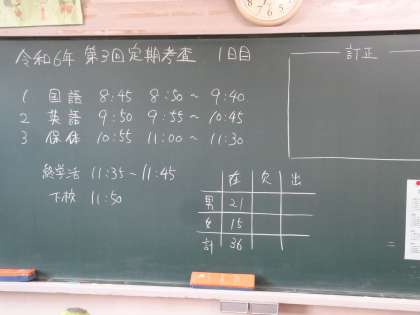 令和6年 第3回定期考査 1日目
訂正
1 国語 8:45 8:50～9:40
2 英語 9:50 9:55～10:45
3 保体 10:55 11:00～11:30
終学活 11:35～11:45
下校 11:50
在 欠 出
男 21
女 15
計 36